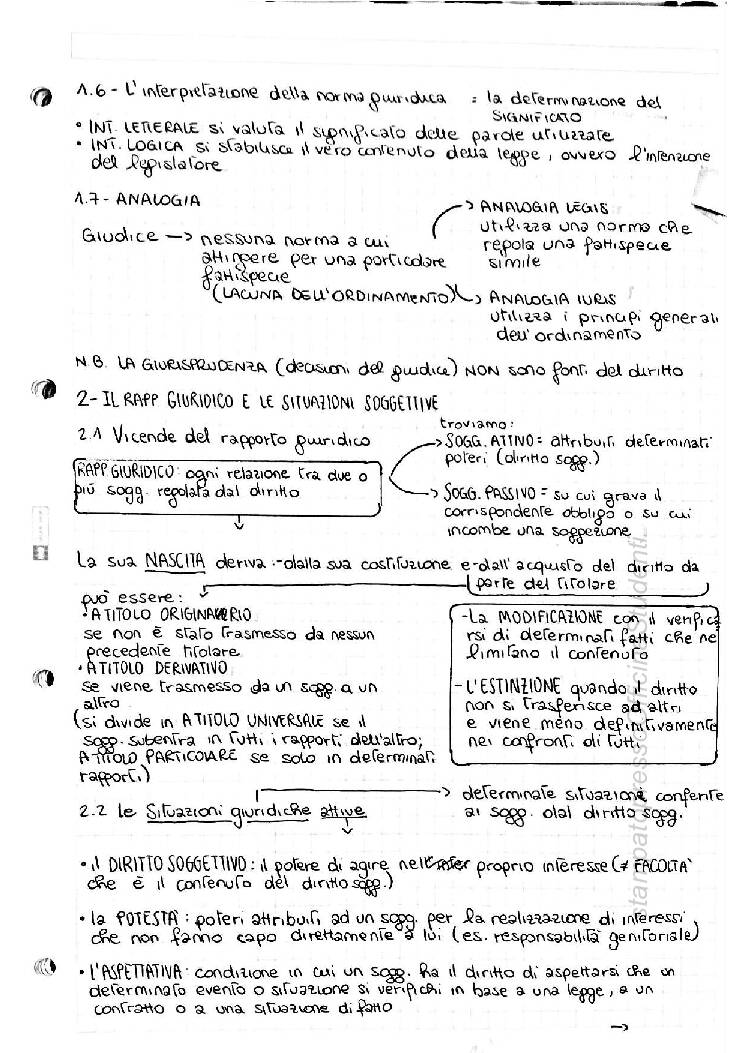 1.6 - L'interpretazione della norma giuridica = la determinazione del
SIGNIFICATO
• INT. LETTERALE si valuta il significato delle parole utilizzate
• INT. LOGICA si stabilisce il vero contenuto della legge, ovvero l'intenzione
del legislatore
1.7 - ANALOGIA
-> ANALOGIA LEGIS
utilizza una norma che
regola una fattispecie
simile
Giudice -> nessuna norma a cui
attingere per una particolare
fattispecie
(LACUNA DELL'ORDINAMENTO)
-> ANALOGIA IURIS
utilizza i principi generali
dell'ordinamento
N.B. LA GIURISPRUDENZA (decisioni del giudice) NON sono fonti del diritto
2- IL RAPP. GIURIDICO E LE SITUAZIONI SOGGETTIVE
2.1 Vicende del rapporto giuridico
RAPP. GIURIDICO: ogni relazione tra due o
più sogg. regolata dal diritto
troviamo:
-> SOGG. ATTIVO = attribuiti determinati
poteri (diritto sogg.)
-> SOGG. PASSIVO = su cui grava il
corrispondente obbligo o su cui
incombe una soggezione
La sua NASCITA deriva: -dalla sua costituzione e -dall'acquisto del diritto da
parte del titolare
può essere:
• A TITOLO ORIGINARIO
se non è stato trasmesso da nessun
precedente titolare
• A TITOLO DERIVATIVO
se viene trasmesso da un sogg. a un
altro
(si divide in A TITOLO UNIVERSALE se il
sogg. subentra in tutti i rapporti dell'altro;
A TITOLO PARTICOLARE se solo in determinati
rapporti)
- La MODIFICAZIONE con il verifica
rsi di determinati fatti che ne
limitano il contenuto
- L'ESTINZIONE quando il diritto
non si trasferisce ad altri
e viene meno definitivamente
nei confronti di tutti
2.2 le Situazioni giuridiche attive
-> determinate situazioni conferite
ai sogg. dal diritto sogg.
• il DIRITTO SOGGETTIVO: il potere di agire nell' proprio interesse (≠ FACOLTA'
che è il contenuto del diritto sogg.)
• la POTESTÀ: poteri attribuiti ad un sogg. per la realizzazione di interessi
che non fanno capo direttamente a lui (es. responsabilità genitoriale)
• L'ASPETTATIVA: condizione in cui un sogg. ha il diritto di aspettarsi che un
determinato evento o situazione si verifichi in base a una legge, a un
contratto o a una situazione di fatto
->